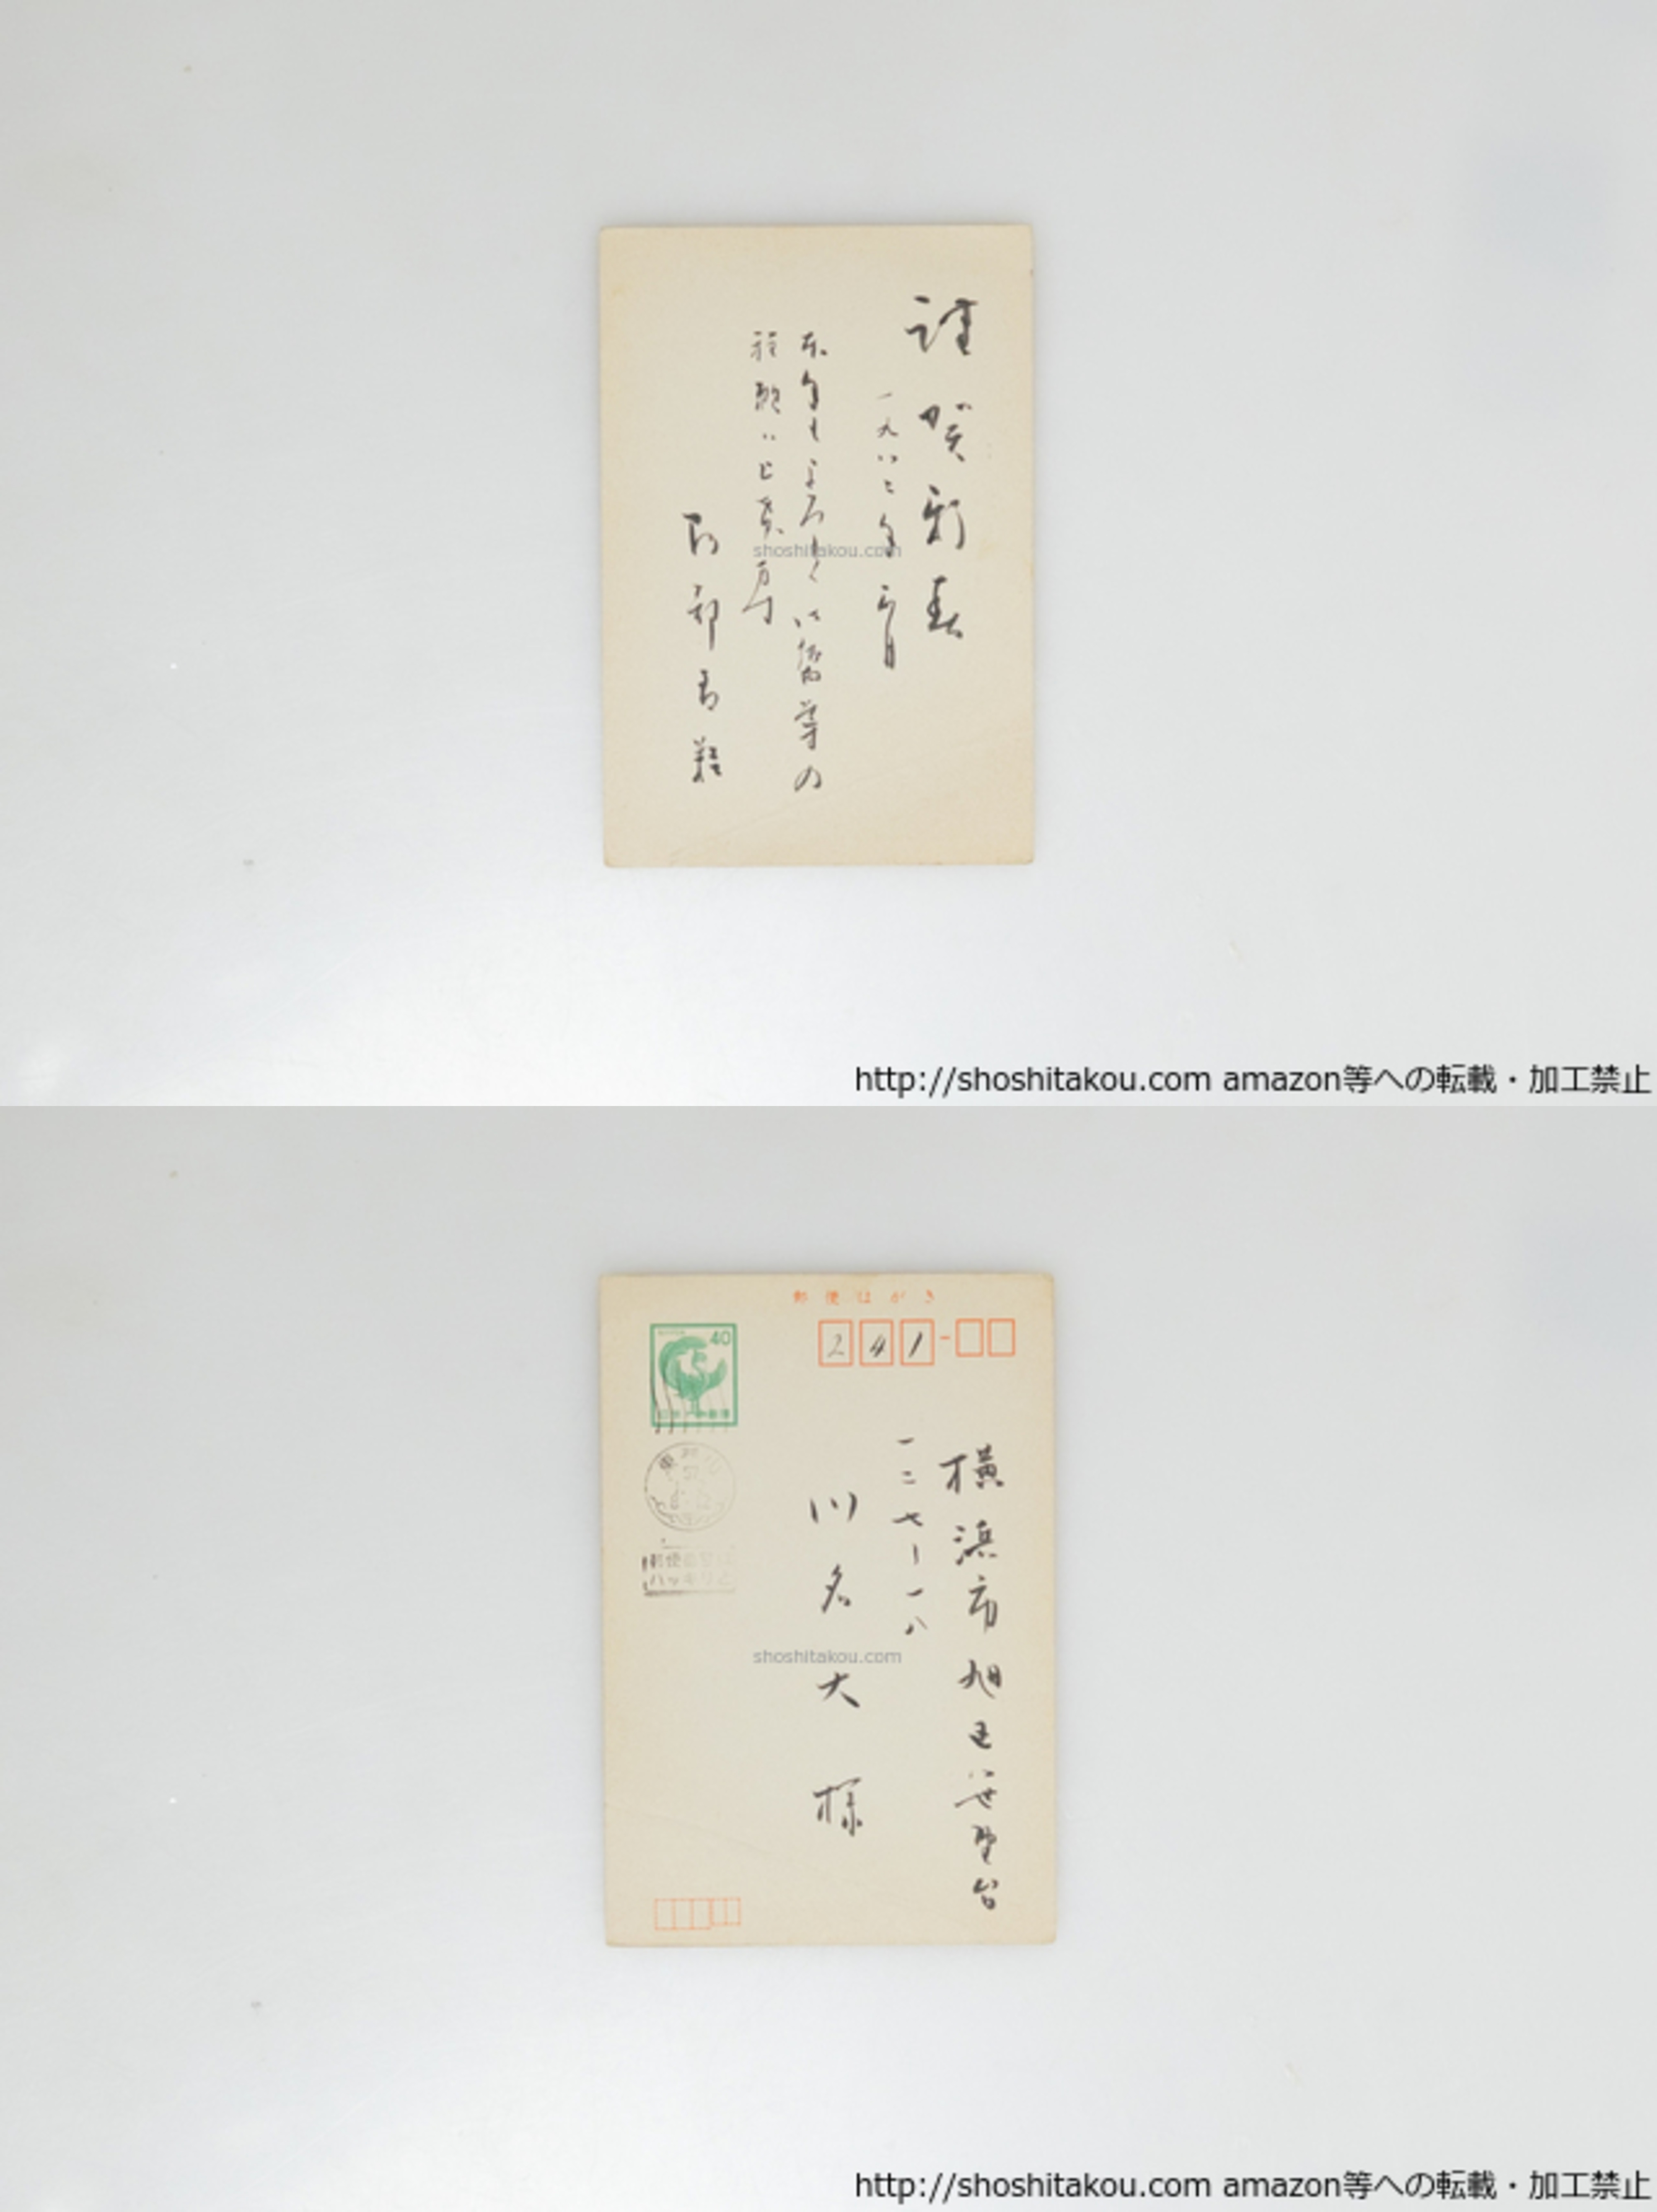 謹賀新春
一九八二年 正月
本年もよろしく御鞭撻の
程願い上げます
阿部青鞋
shoshitakou.com
http://shoshitakou.com amazon等への転載・加工禁止
郵便はがき
40
241
横浜市旭区笹野台
一二七ー一八
川名大様
郵便番号は
ハッキリと
shoshitakou.com
http://shoshitakou.com amazon等への転載・加工禁止